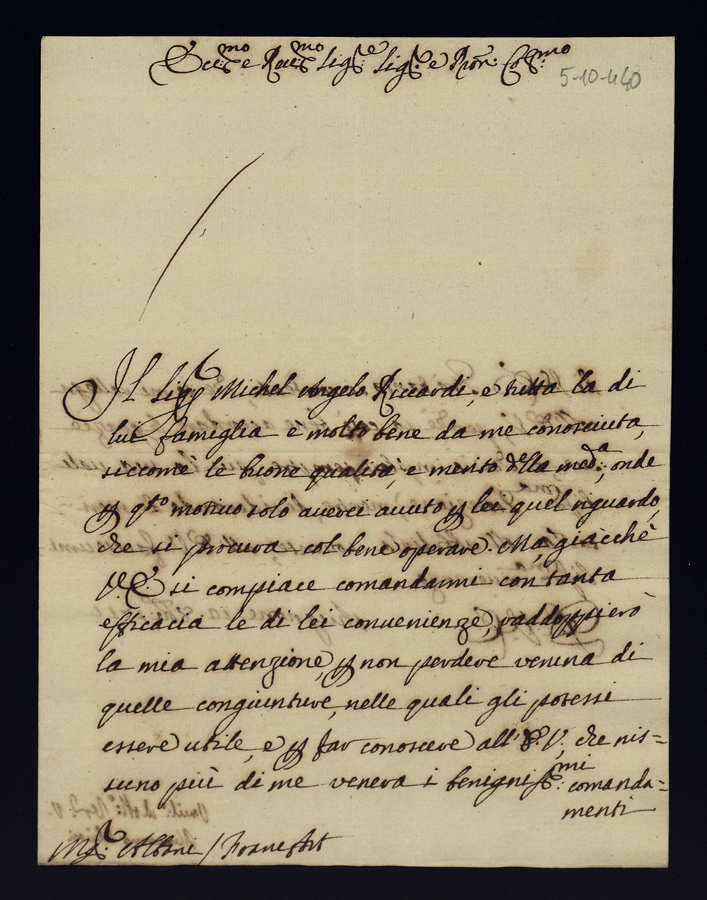 Ecc.mo e Rev.mo Sig.re Sig.re e Pron Col.mo
5-10-460
Il Sig.r Michel Angelo Riccardi, e tutta la di
lui famiglia è molto bene da me conosciuta,
siccome le buone qualità, e merito della med.a; onde
p q.to motivo solo averei avuto p lei quel riguardo,
che si procura col bene operare. Ma giacchè
V. E. si compiace comandarmi con tanta
efficacia le di lei convenienze, raddoppierò
la mia attenzione, p non perdere veruna di
quelle congiunture, nelle quali gli potessi
essere utile, e p far conoscere all' E. V. che nis=
suno più di me venera i benigniss.mi comanda=
menti
Mg.r Albani /